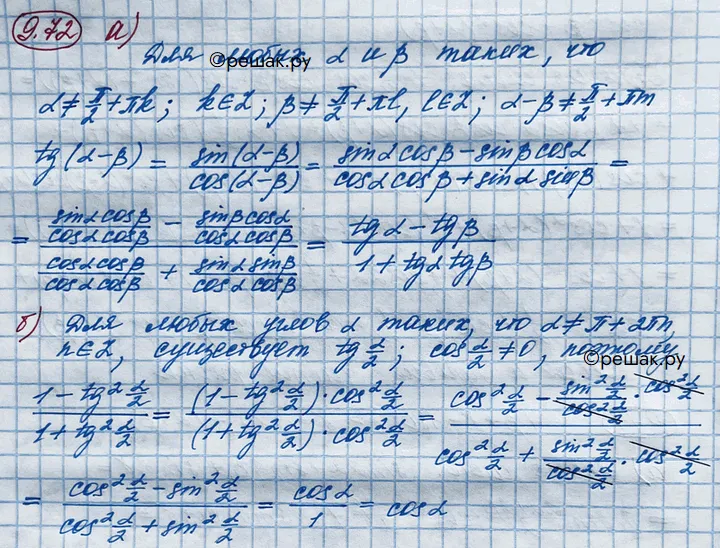 9.72 а)
Для любых α и β таких, что
©решак.ру
α ≠ π/2 + πk; k∈Z; β ≠ π/2 + πl, l∈Z; α-β ≠ π/2 + πm
tg(α-β) = sin(α-β)/cos(α-β) = (sinα cosβ - sinβ cosα)/(cosα cosβ + sinα sinβ) =
= (sinα cosβ/cosα cosβ - sinβ cosα/cosα cosβ)/(cosα cosβ/cosα cosβ + sinα sinβ/cosα cosβ) = (tgα - tgβ)/(1 + tgα tgβ)
б) Для любых углов α таких, что α ≠ π + 2πn,
n∈Z, существует tg α/2; cos α/2 ≠ 0, поэтому
©решак.ру
(1 - tg² α/2)/(1 + tg² α/2) = ((1 - tg² α/2) · cos² α/2)/((1 + tg² α/2) · cos² α/2) = (cos² α/2 - sin² α/2/cos² α/2 · cos² α/2)/(cos² α/2 + sin² α/2/cos² α/2 · cos² α/2)
= (cos² α/2 - sin² α/2)/(cos² α/2 + sin² α/2) = cosα/1 = cosα